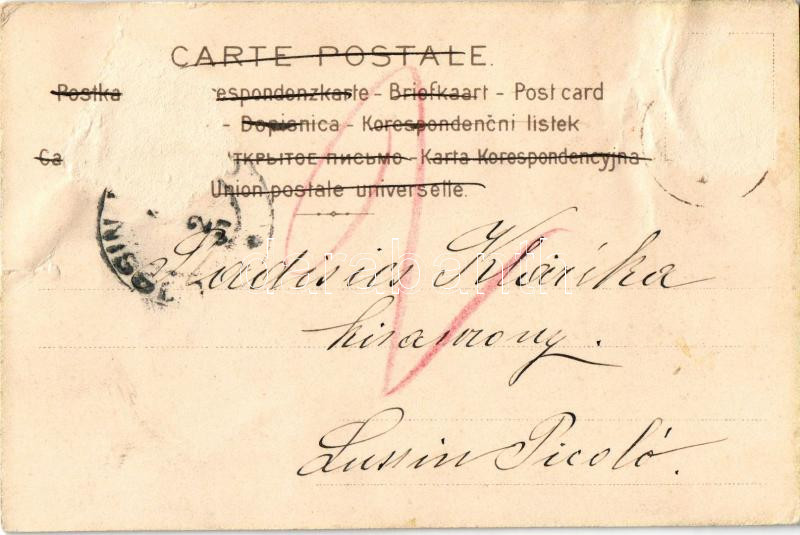 CARTE POSTALE.
Postka espondenzkarte - Briefkaart - Post card
- Dopisnica - Korespondenční listek
Ca ТКРЫТОЕ ПИСЬМО - Karta Korespondencyjna
Union postale universelle.
25
LUSSIN
Klárika
kisasszony.
Lussin Picoló.
darabanth